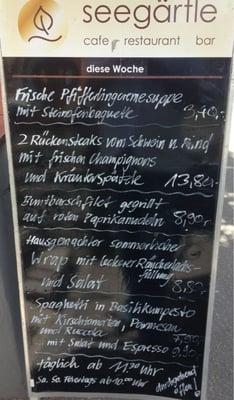 seegärtle
cafe restaurant bar
diese Woche
Frische Pfifferlingcremesuppe
mit Steinofenbaguette
2 Rückensteaks vom Schwein u. Rind
mit frischen Champignons
und Kräuterspätzle 13,80
Buntbarschfilet gegrillt
auf roten Paprikanudeln 8,90
Hausgemachter sommerlicher
Wrap mit leckerer Räucherlachs-
füllung
und Salat 8,80
Spaghetti in Basilikumpesto
mit Kirschtomaten, Parmesan
und Rucola
... mit Salat und Espresso 9,90
täglich ab 11.30 Uhr
Sa. So. Feiertags ab 10.00 Uhr
durchgehend
offen!